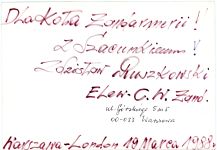 Dla Koła Żandarmerii!
Z Szacunkiem!
Zdzisław Ruszkowski
Elew. C.W. Żand.
ul. Górskiego 5 m 5
00-033 Warszawa
Warszawa-London 19 Marca 1988